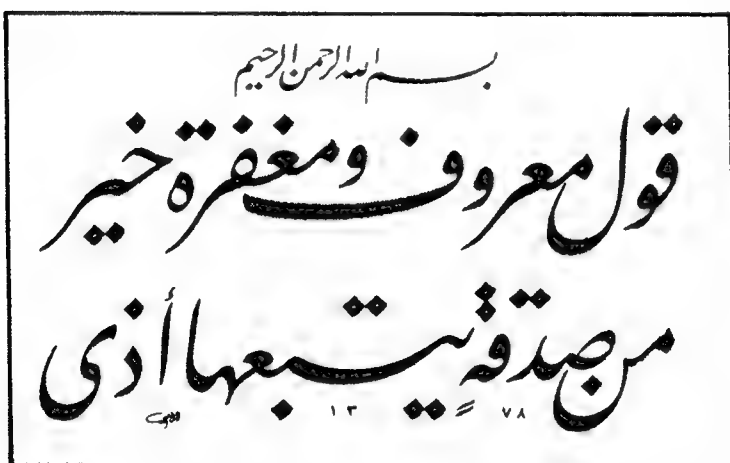 بسم الله الرحمن الرحيم
قول معروف ومغفرة خير
من صدقة يتبعها أذى
١٣٧٨